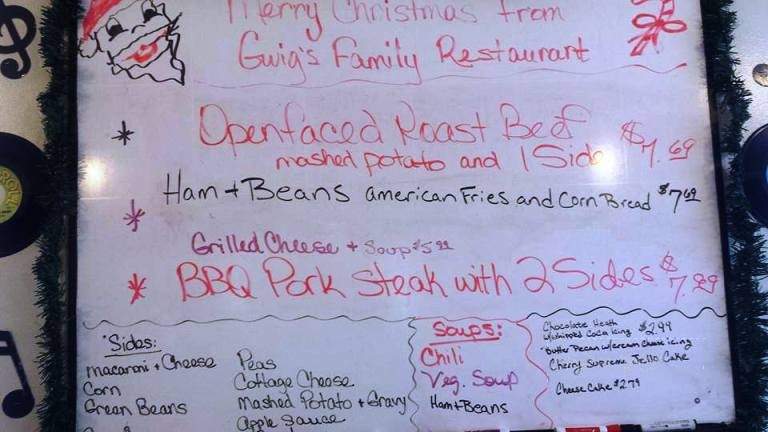 Merry Christmas from
Gwig's Family Restaurart
* Openfaced Roast Beef $7.69
mashed potato and 1 Side
Ham + Beans american Fries and Corn Bread $7.69
*
Grilled Cheese + Soup $5.99
* BBQ Pork Steak with 2 Sides $7.99
Sides:
macaroni + Cheese
Corn
Green Beans
Peas
Cottage Cheese
Mashed Potato + Gravy
apple Sauce
Soups:
Chili
Veg. Soup
Ham + Beans
Chocolate Heath $2.99
w/whipped Coco icing
Butter Pecan w/cream cheese icing
Cherry Supreme Jello Cake
Cheese Cake $2.79